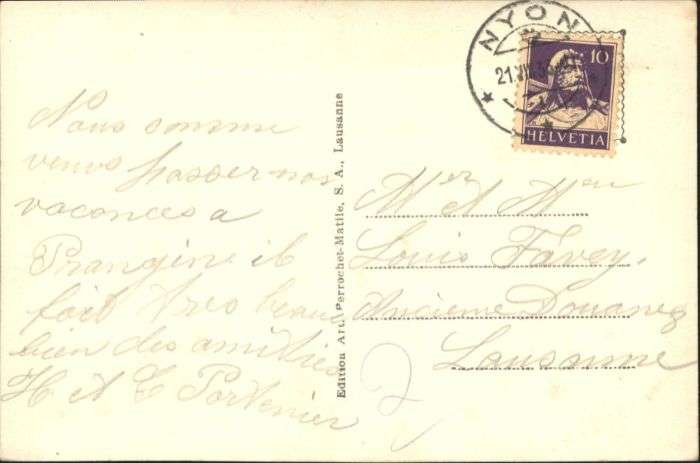 NYON
21.VII.3
10
HELVETIA
Nous somme
venus passer nos
vacances a
Prangin il
fait tres beau
bien des amitiés
H et E Portenier
Edition Art. Perrochet-Matile, S. A., Lausanne
Mer et Me
Louis Favey,
Ancienne Douane
Lausanne